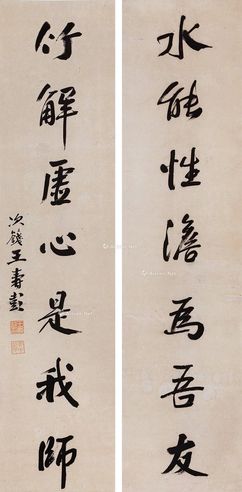 水能性澹爲吾友
竹解虛心是我師
次籛王壽彭